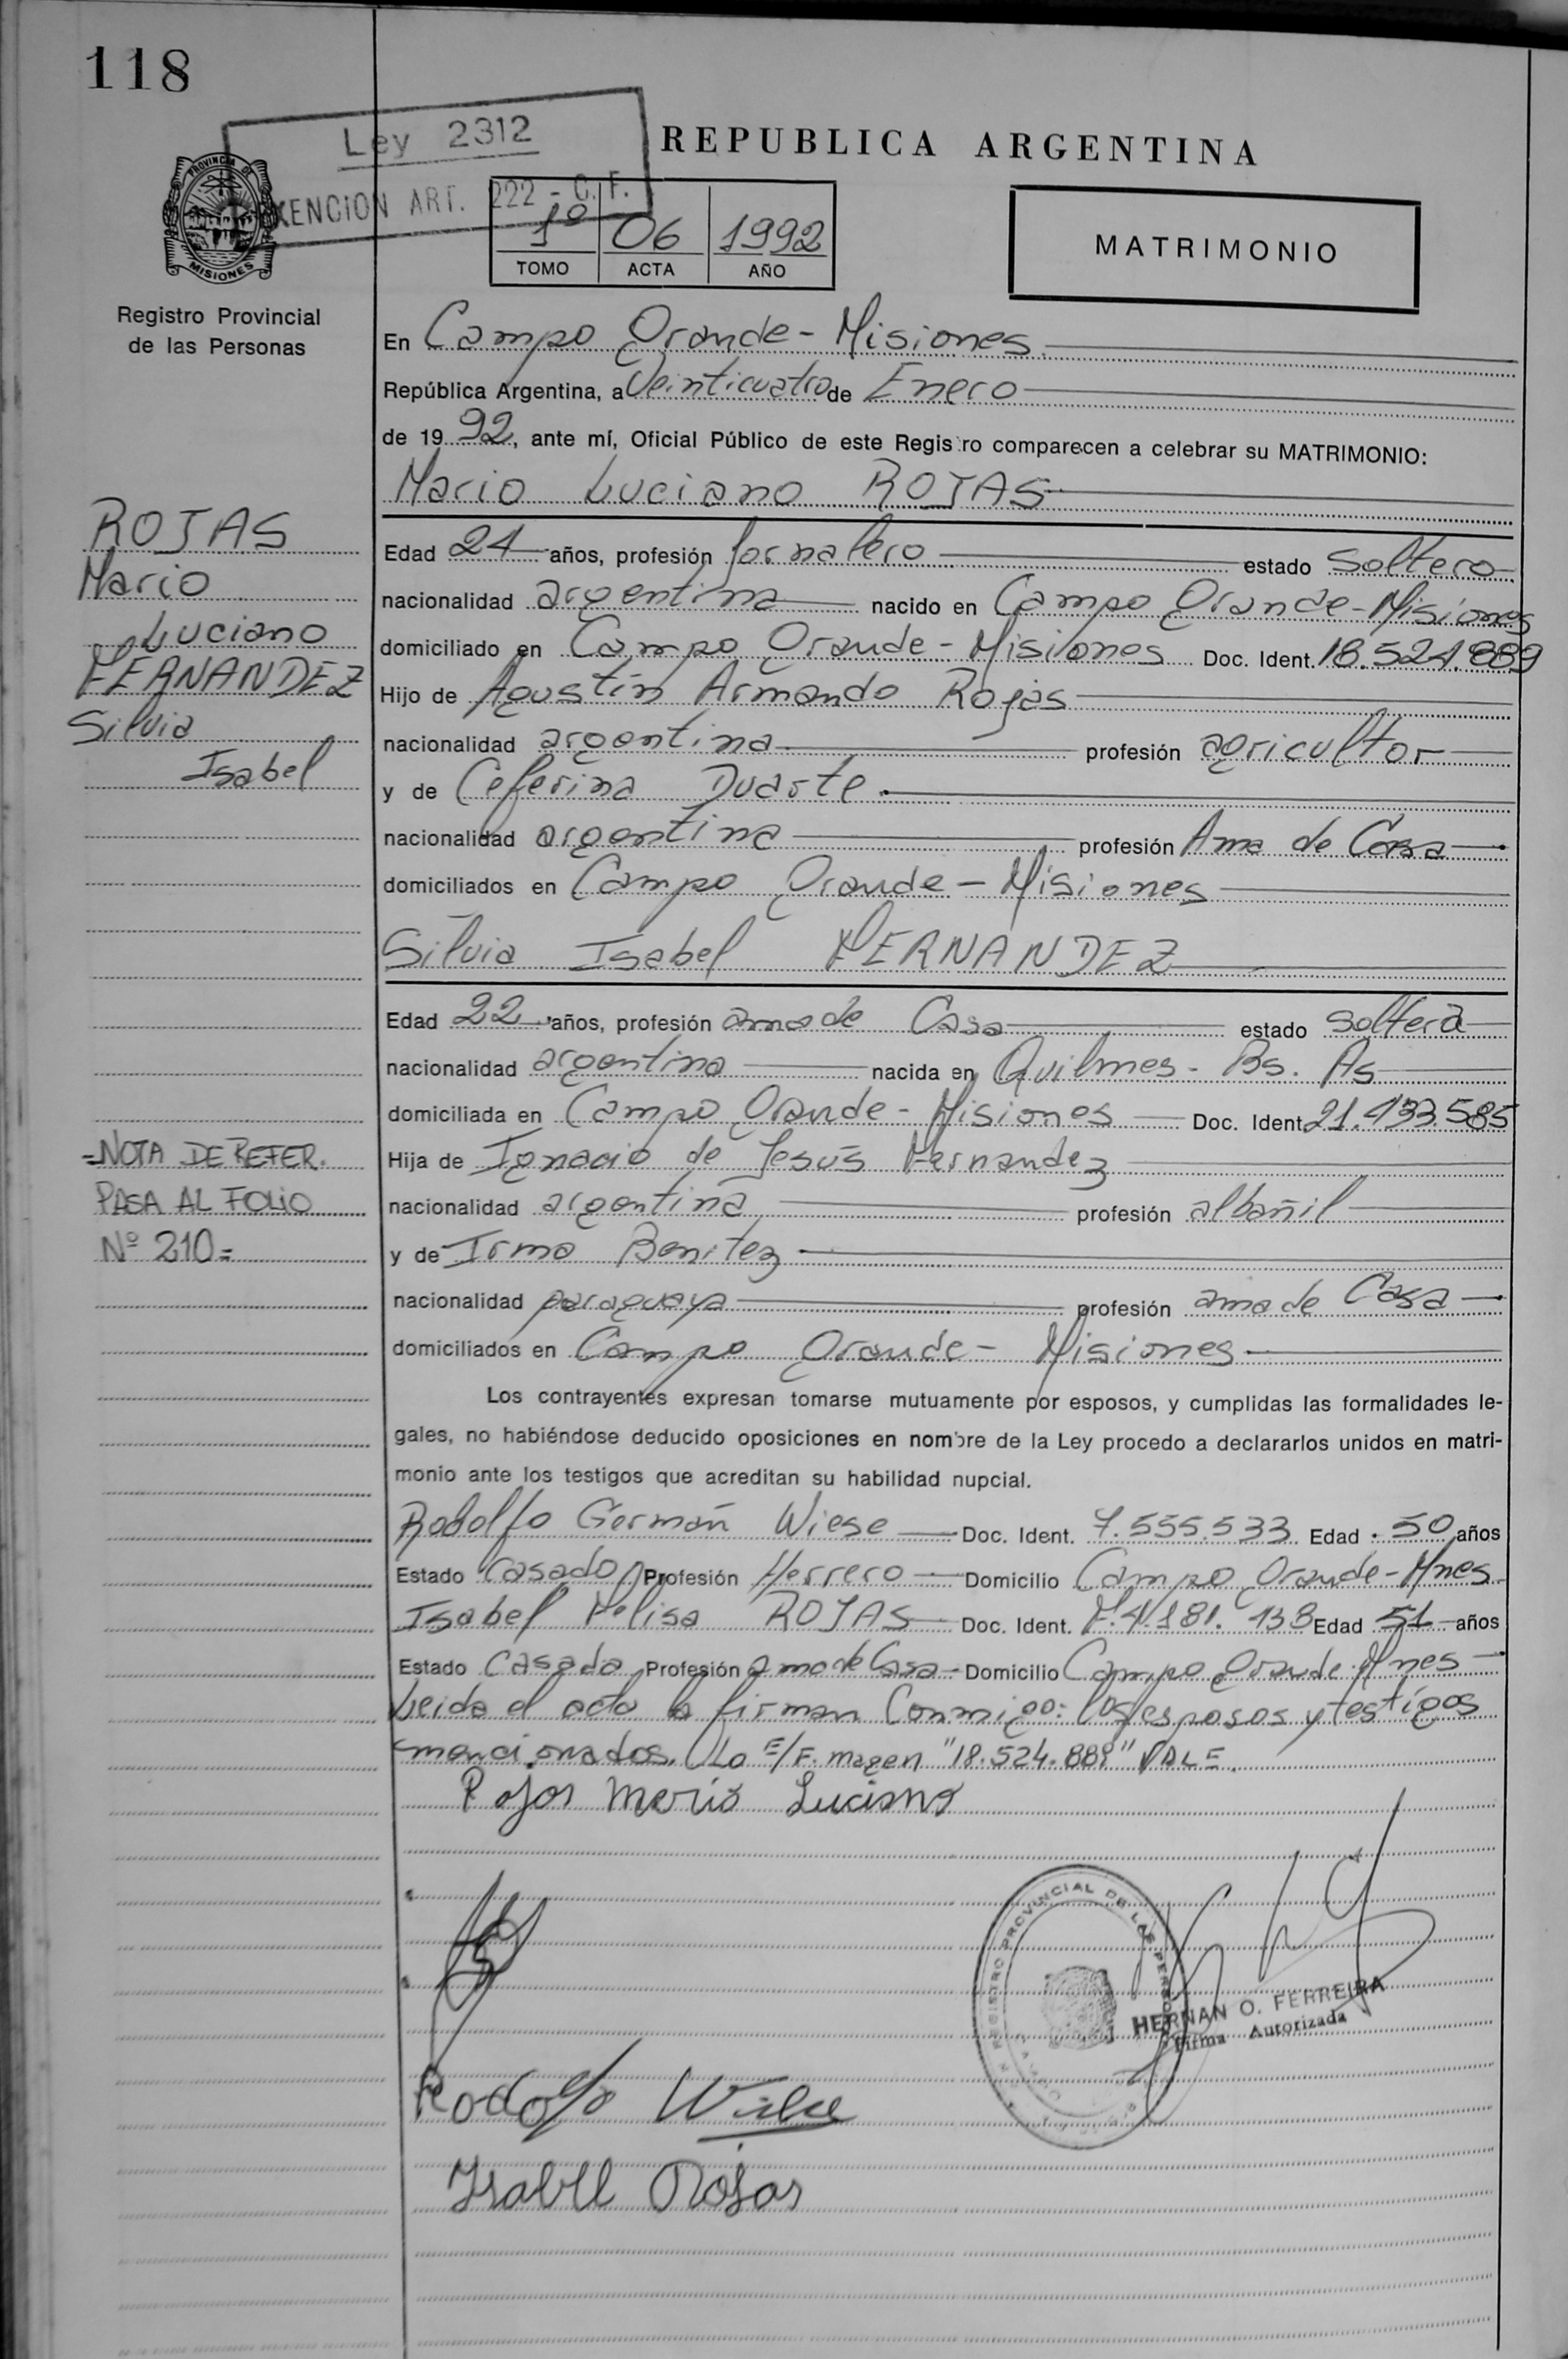 118
Ley 2312
EXENCION ART. 222 - C.F.
REPUBLICA ARGENTINA
PROVINCIA DE MISIONES
1º 06 1992
TOMO ACTA AÑO
MATRIMONIO
Registro Provincial
de las Personas
En Campo Grande - Misiones
República Argentina, a Veinticuatro de Enero
de 1992, ante mí, Oficial Público de este Registro comparecen a celebrar su MATRIMONIO:
Mario Luciano ROJAS
ROJAS
Mario
Luciano
FERNANDEZ
Silvia
Isabel
Edad 24 años, profesión Jornalero estado Soltero
nacionalidad argentina nacido en Campo Grande - Misiones
domiciliado en Campo Grande - Misiones Doc. Ident. 18.524.889
Hijo de Agustín Armando Rojas
nacionalidad argentina profesión agricultor
y de Ceferina Duarte
nacionalidad argentina profesión Ama de Casa
domiciliados en Campo Grande - Misiones
Silvia Isabel FERNANDEZ
Edad 22 años, profesión ama de Casa estado Soltera
nacionalidad argentina nacida en Quilmes - Bs. As
domiciliada en Campo Grande - Misiones Doc. Ident. 21.433.585
Hija de Ignacio de Jesús Fernandez
nacionalidad argentina profesión albañil
y de Irma Benitez
nacionalidad paraguaya profesión ama de Casa
domiciliados en Campo Grande - Misiones
=NOTA DE REFER.
PASA AL FOLIO
Nº 210=
Los contrayentes expresan tomarse mutuamente por esposos, y cumplidas las formalidades le-
gales, no habiéndose deducido oposiciones en nombre de la Ley procedo a declararlos unidos en matri-
monio ante los testigos que acreditan su habilidad nupcial.
Rodolfo Germán Wiese Doc. Ident. 7.555.533 Edad 50 años
Estado Casado Profesión Herrero Domicilio Campo Grande - Mnes
Isabel Felisa ROJAS Doc. Ident. F.4.181.138 Edad 51 años
Estado Casada Profesión ama de Casa - Domicilio Campo Grande Mnes
Leida el acta la firman Conmigo: los esposos y testigos
mencionados. Lo E/F. magen "18.524.889" VALE.
Rojas Mario Luciano
REGISTRO PROVINCIAL DE LAS PERSONAS
HERNAN O. FERREIRA
Firma Autorizada
Rodolfo Wiese
Isabel Rojas